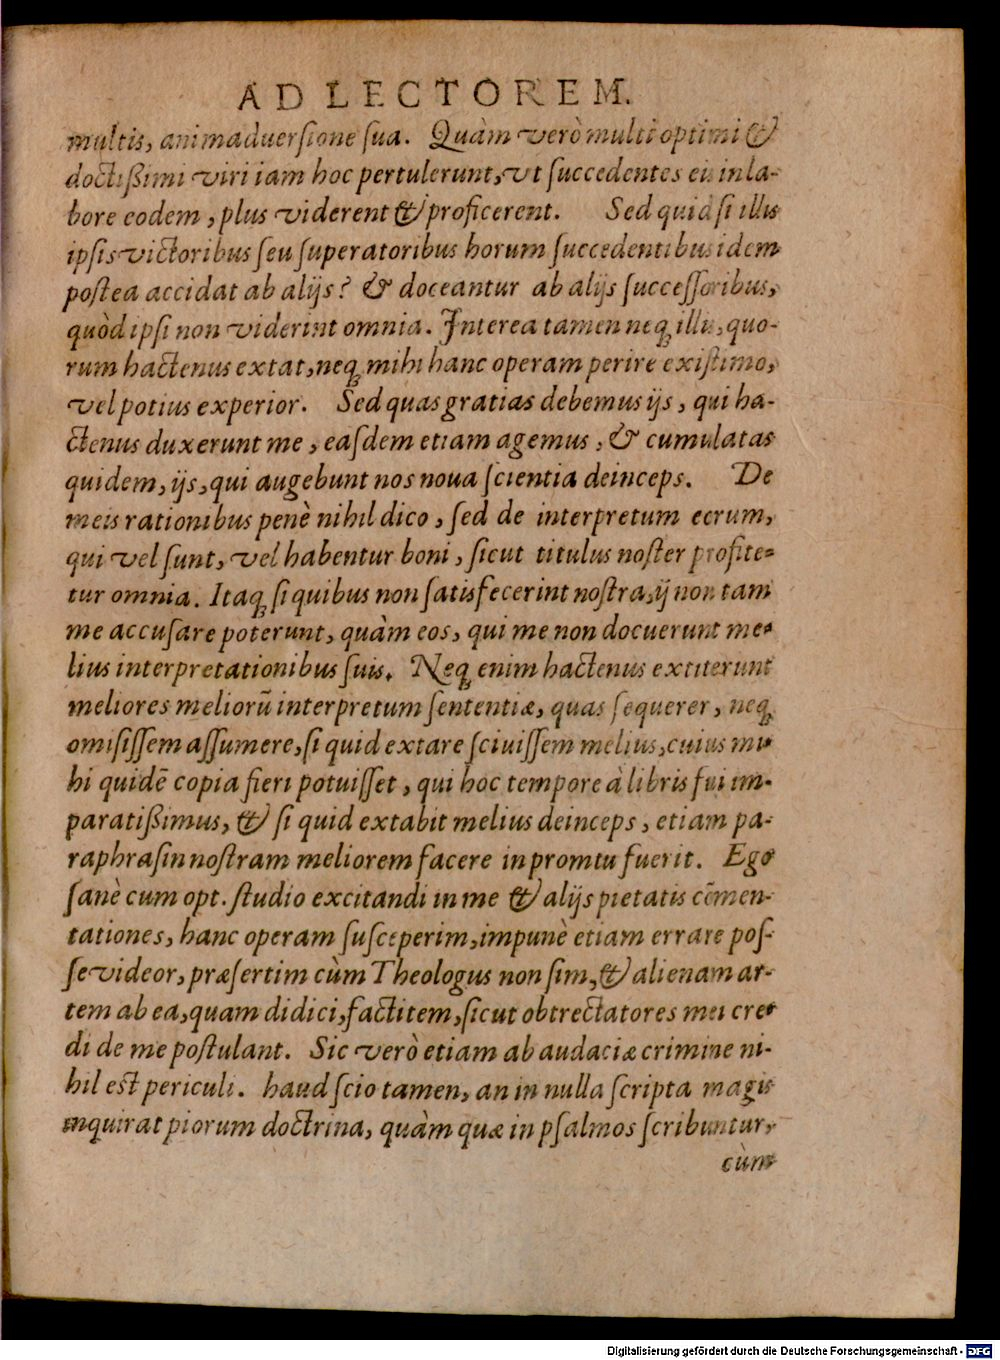 AD LECTOREM.
multis, animaduersione sua. Quàm verò multi optimi &
doctißimi viri iam hoc pertulerunt, vt succedentes eis in la-
bore eodem, plus viderent & proficerent. Sed quid si illis
ipsis victoribus seu superatoribus horum succedentibus idem
postea accidat ab alijs? & doceantur ab alijs successoribus,
quòd ipsi non viderint omnia. Interea tamen neq; illis, quo-
rum hactenus extat, neq; mihi hanc operam perire existimo,
vel potius experior. Sed quas gratias debemus ijs, qui ha-
ctenus duxerunt me, easdem etiam agemus, & cumulatas
quidem, ijs, qui augebunt nos noua scientia deinceps. De
meis rationibus penè nihil dico, sed de interpretum eorum,
qui vel sunt, vel habentur boni, sicut titulus noster profite-
tur omnia. Itaq; si quibus non satisfecerint nostra, ij non tam
me accusare poterunt, quàm eos, qui me non docuerunt me-
lius interpretationibus suis. Neq; enim hactenus extiterunt
meliores meliorū interpretum sententiæ, quas sequerer, neq;
omisissem assumere, si quid extare sciuissem melius, cuius mi-
hi quidē copia fieri potuisset, qui hoc tempore à libris fui im-
paratißimus, & si quid extabit melius deinceps, etiam pa-
raphrasin nostram meliorem facere in promtu fuerit. Ego
sanè cum opt. studio excitandi in me & alijs pietatis cōmen-
tationes, hanc operam susceperim, impunè etiam errare pos-
se videor, præsertim cùm Theologus non sim, & alienam ar-
tem ab ea, quam didici, factitem, sicut obtrectatores mei cre-
di de me postulant. Sic verò etiam ab audaciæ crimine ni-
hil est periculi. haud scio tamen, an in nulla scripta magis
inquirat piorum doctrina, quàm quæ in psalmos scribuntur,
cùm
Digitalisierung gefördert durch die Deutsche Forschungsgemeinschaft - DFG